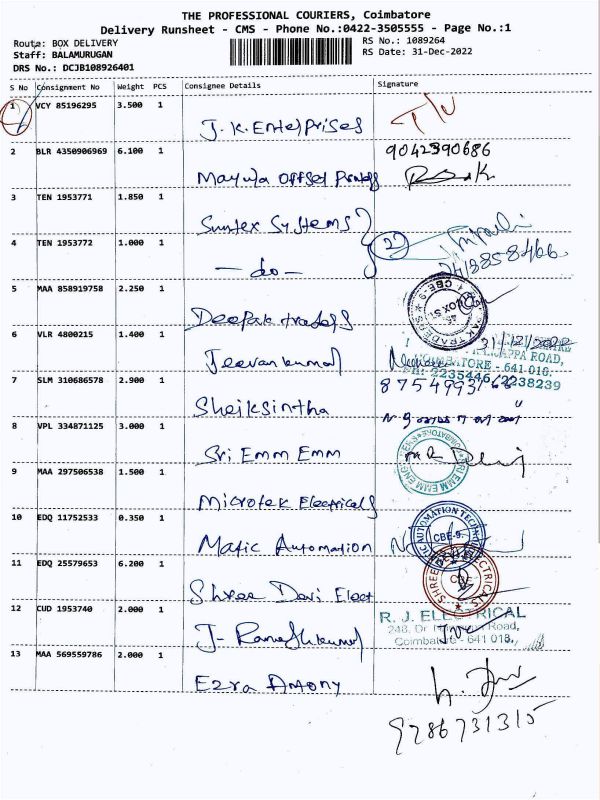 THE PROFESSIONAL COURIERS, Coimbatore
Delivery Runsheet - CMS - Phone No.:0422-3505555 - Page No.:1
Route: BOX DELIVERY RS No.: 1089264
Staff: BALAMURUGAN RS Date: 31-Dec-2022
DRS No.: DCJB108926401
S No Consignment No Weight PCS Consignee Details Signature
1 VCY 85196295 3.500 1
J.K. Enterprises
2 BLR 4350906969 6.100 1 9042390686
Mayura Offset Printers
3 TEN 1953771 1.850 1
Suntex Systems
4 TEN 1953772 1.000 1 2
- do -
5 MAA 858919758 2.250 1
Deepak traders
6 VLR 4800215 1.400 1 31/12/2022
Jeevankumar
COIMBATORE - 641 018.
PH: 2235446, 2238239
7 SLM 310686578 2.900 1
Sheiksintha
8 VPL 334871125 3.000 1
Sri Emm Emm
9 MAA 297506538 1.500 1
Microtek Electricals
10 EDQ 11752533 0.350 1
Matic Automation
CBE-9.
11 EDQ 25579653 6.200 1
Shree Devi Elect
12 CUD 1953740 2.000 1 R. J. ELECTRICAL
J. Rameshkumar
Coimbatore - 641 018.
13 MAA 569559786 2.000 1
Ezra Antony
9786731315